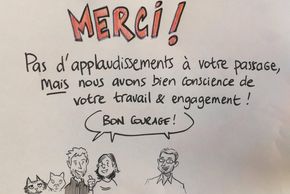 MERCI!
Pas d'applaudissements à votre passage,
Mais nous avons bien conscience de
votre travail & engagement !
BON COURAGE !